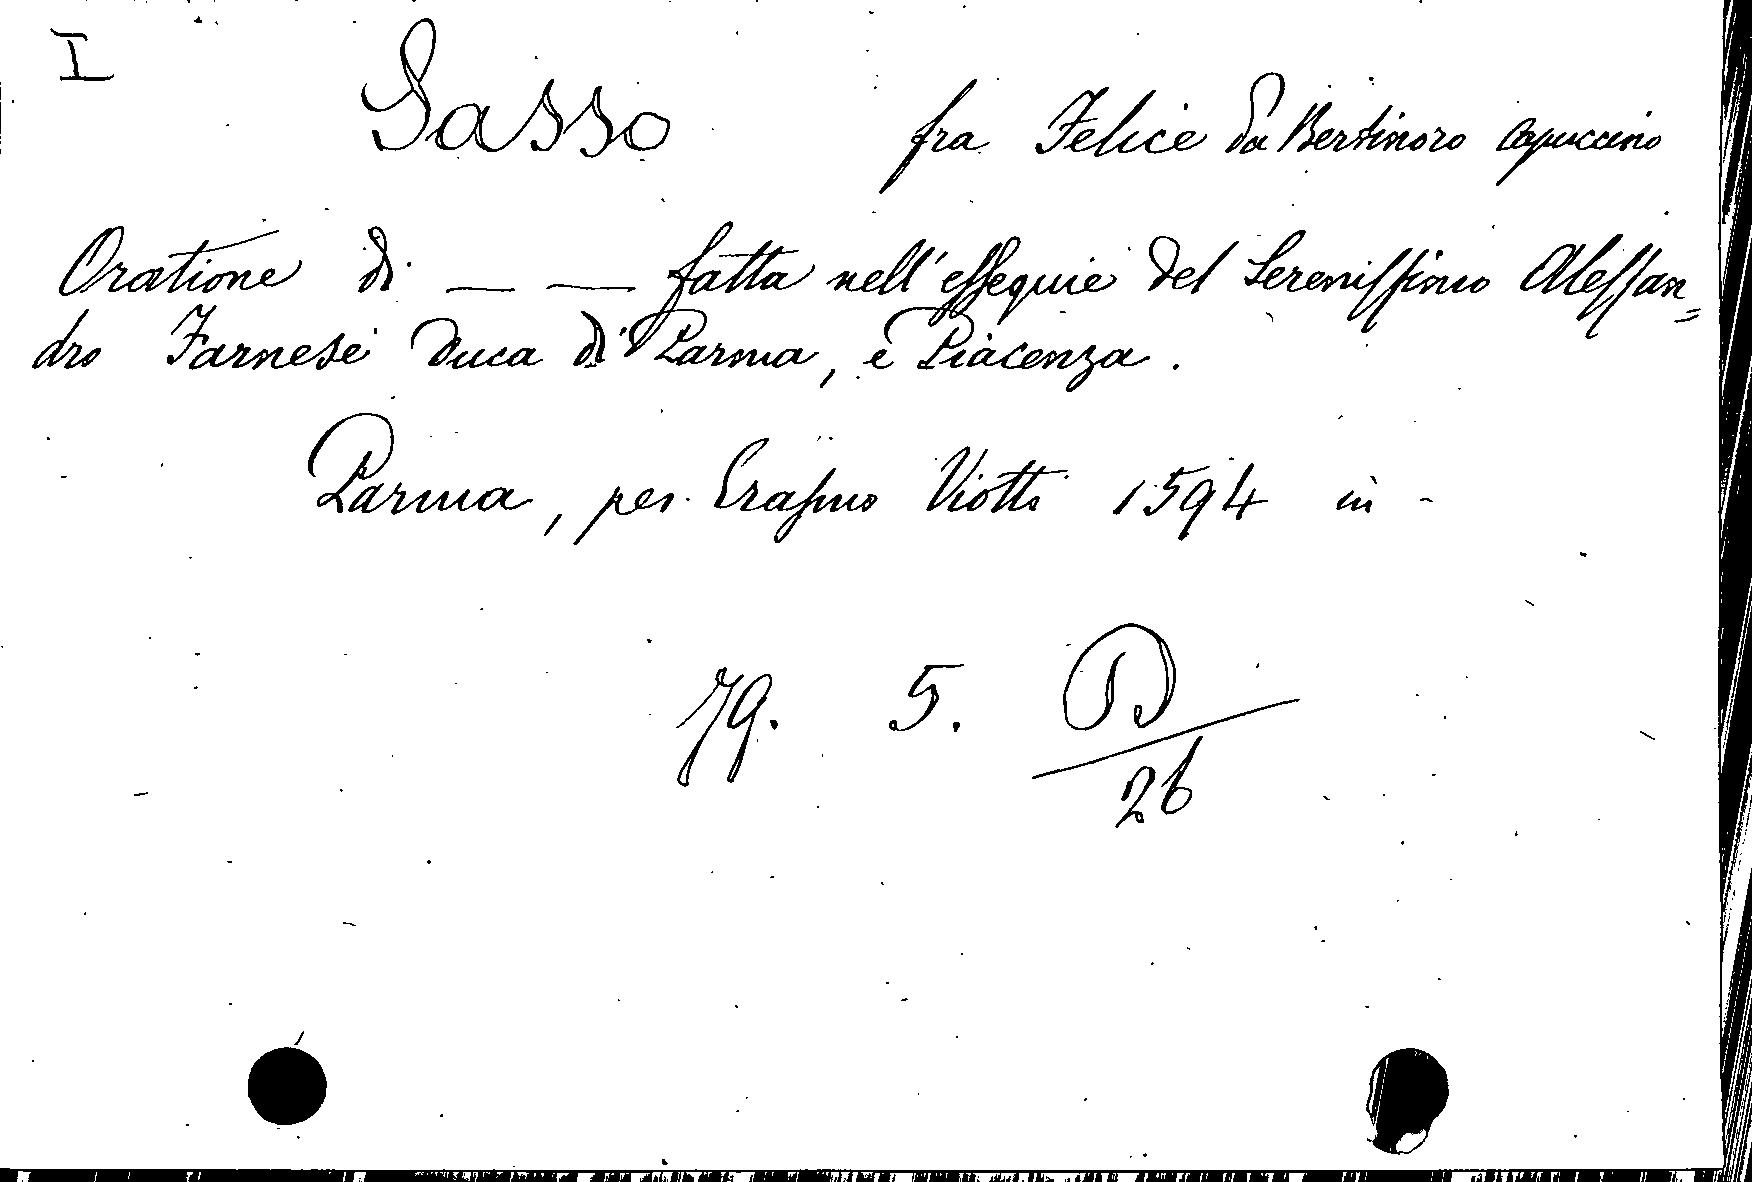 I
Sasso fra Felice da Bertinoro Capuccino
Oratione di — — fatta nell'essequie del Serenissimo Alessan=
dro Farnese Duca di Parma, e Piacenza.
Parma, per Erasmo Viotti 1594 in -
79. 5. D
26